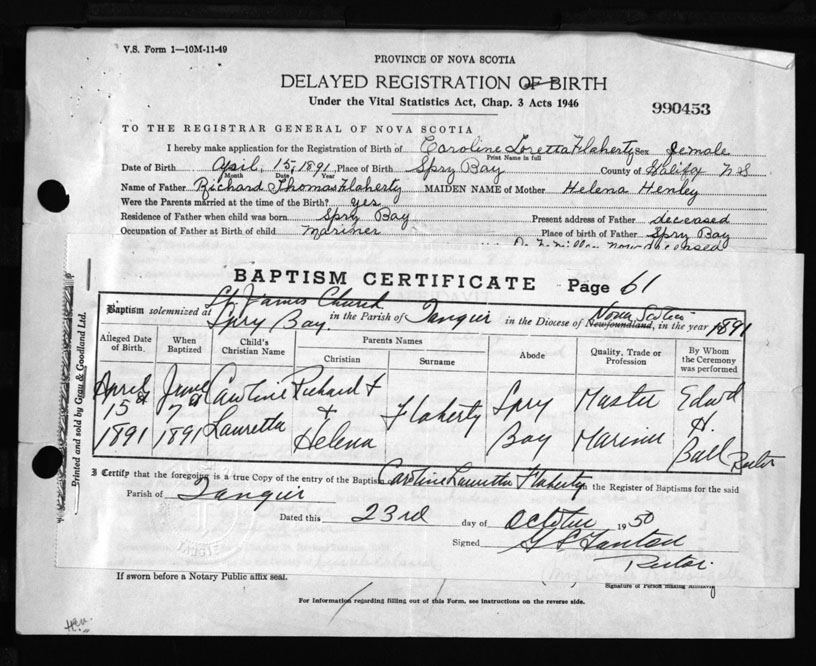 V.S. Form 1—10M-11-49
PROVINCE OF NOVA SCOTIA
DELAYED REGISTRATION OF BIRTH
Under the Vital Statistics Act, Chap. 3 Acts 1946
990453
TO THE REGISTRAR GENERAL OF NOVA SCOTIA
I hereby make application for the Registration of Birth of Caroline Loretta Flaherty Sex Female
Print Name in full
Date of Birth April 15, 1891 Place of Birth Spry Bay County of Halifax N S
Month Date Year
Name of Father Richard Thomas Flaherty MAIDEN NAME of Mother Helena Henley
Were the Parents married at the time of the Birth? yes
Residence of Father when child was born Spry Bay Present address of Father deceased
Occupation of Father at Birth of child Mariner Place of birth of Father Spry Bay
now deceased
BAPTISM CERTIFICATE Page 61
Baptism solemnized at St. James Church Spry Bay in the Parish of Tangier in the Diocese of Newfoundland, Nova Scotia in the year 1891
Alleged Date of Birth. When Baptized Child's Christian Name Parents Names Christian Surname Abode Quality, Trade or Profession By Whom the Ceremony was performed
April Jun Caroline Richard Flaherty Spry Master Edwd
15 7 Lauretta + Bay Mariner H.
1891 1891 Helena Ball Rector
I Certify that the foregoing is a true Copy of the entry of the Baptism Caroline Lauretta Flaherty in the Register of Baptisms for the said
Parish of Tangier
Dated this 23rd day of October 1950
Signed
Rector.
Printed and sold by Gray & Goodland Ltd.
If sworn before a Notary Public affix seal.
Signature of Person Making Affidavit
For Information regarding filling out of this Form, see instructions on the reverse side.